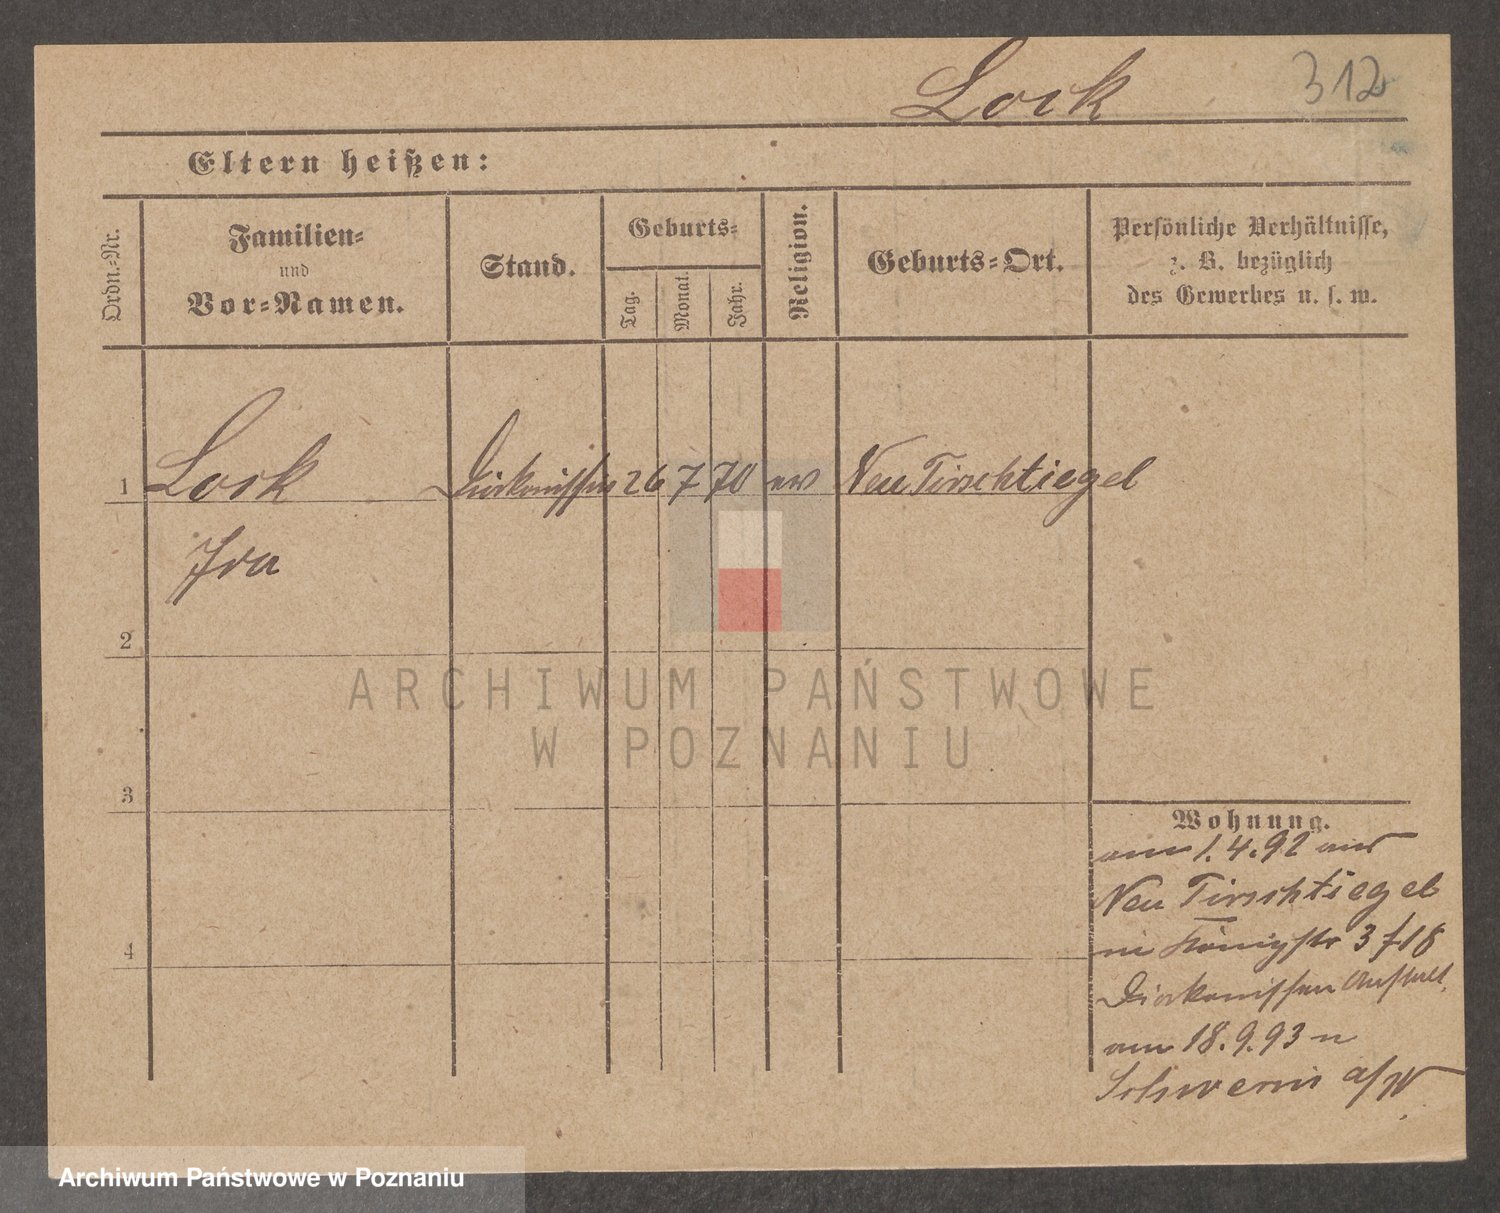 Lock 312
Eltern heißen:
Ordn.-Nr.
Familien-
und
Vor-Namen.
Stand.
Geburts-
Tag.
Monat.
Jahr.
Religion.
Geburts-Ort.
Persönliche Verhältnisse,
z. B. bezüglich
des Gewerbes u. s. w.
1 Lock Diakonissin 26 7 70 ev Neu Tirschtiegel
Ida
2
ARCHIWUM PAŃSTWOWE
W POZNANIU
3
Wohnung.
am 1.4.92 aus
Neu Tirschtiegel
in Königstr 3 f 18
4
Diakonissen Anstalt.
am 18.9.93 n
Schwerin a/W
Archiwum Państwowe w Poznaniu